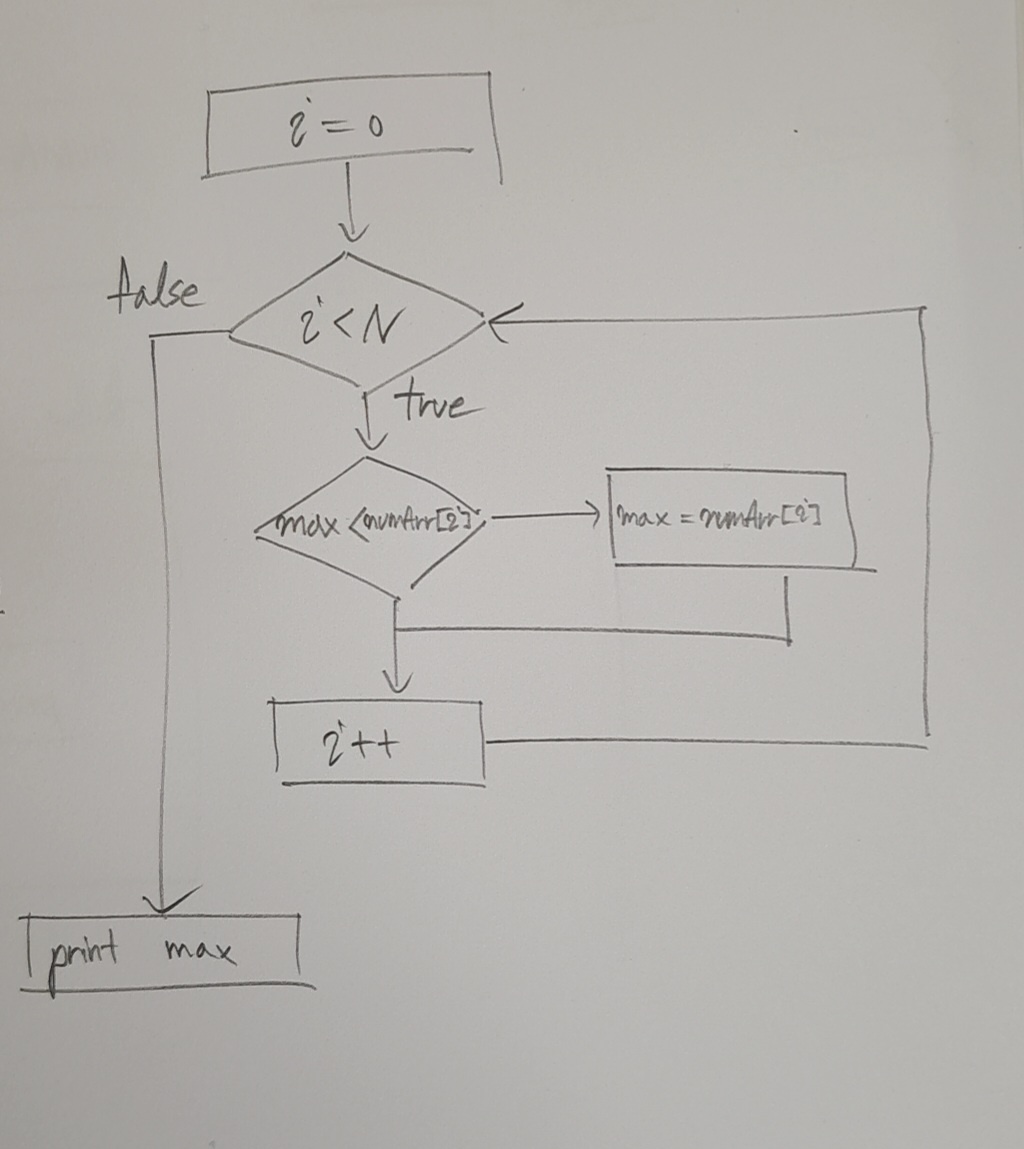 i = 0
false
i < N
true
max < numArr[i]
max = numArr[i]
i++
print max